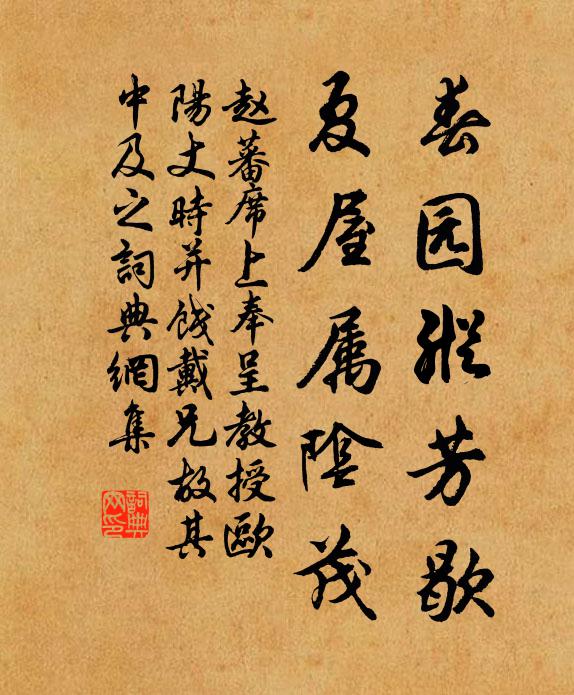 春园纵芳歇
夏屋属陰茂
赵蕃席上奉呈教授歐
陽丈時并餞戴兄故其
中及之詞典網集
詞典網印